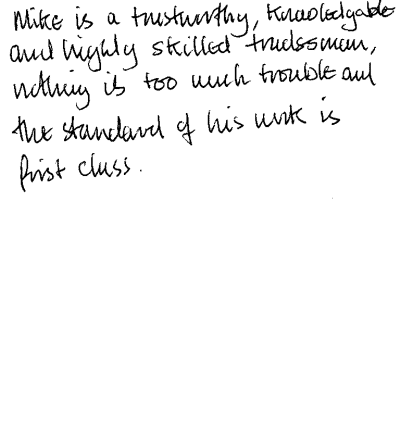 Mike is a trustworthy, knowledgable
and highly skilled tradesman,
nothing is too much trouble and
the standard of his work is
first class.